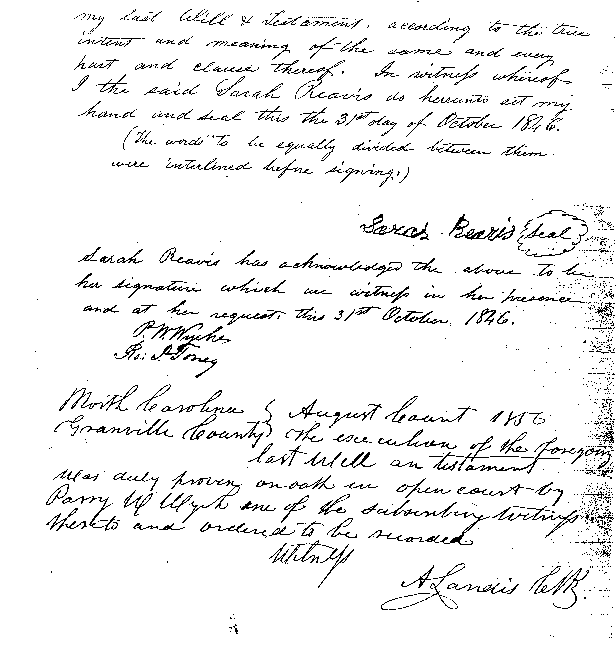 my last Will & Testament, according to the true
intent and meaning of the same and every
part and clause thereof. In witness whereof
I the said Sarah Reavis do hereunto set my
hand and seal this the 31st day of October 1846.
(The words "to be equally divided between them
were interlined before signing.)
Sarah Reavis (seal)
Sarah Reavis has acknowledged the above to be
her signature which we witness in her presence
and at her request, this 31st October 1846.
P. W. Wyche
J. Toney
North Carolina } August Court 1856
Granville County } The execution of the foregoing
last Will an testament
was duly proven on oath in open court by
Parry W Wych one of the subscribing Witness
thereto and ordered to be recorded
Witness
A Landis Clk